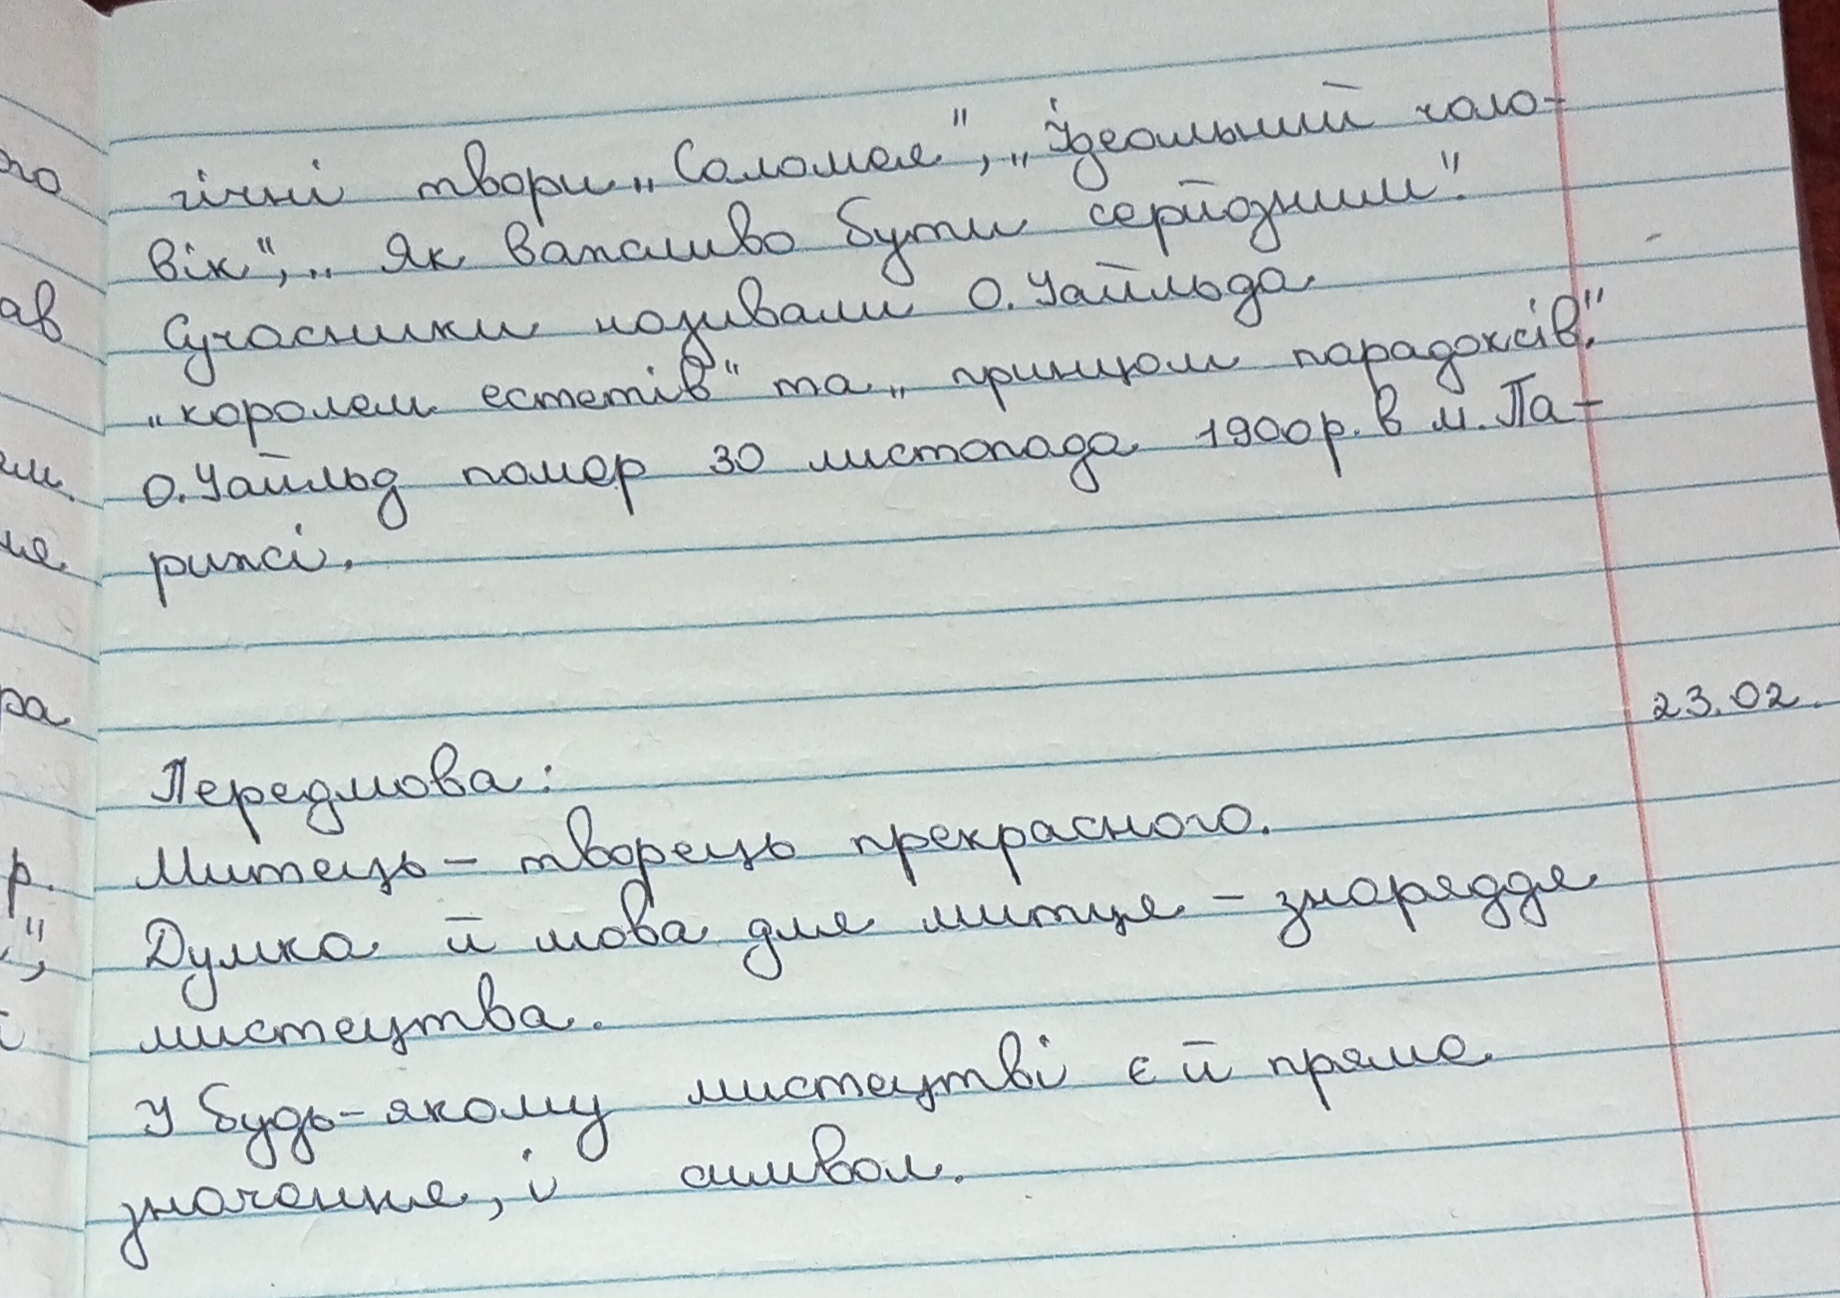 гічні твори „Саломея", „Ідеальний чоло-
вік", „Як важливо бути серйозним".
Сучасники називали О. Уайльда
„королем естетів" та „принцом парадоксів".
О. Уайльд помер 30 листопада 1900р. в м. Па-
рижі.
23.02.
Передмова:
Митець – творець прекрасного.
Думка й мова для митця – знаряддя
мистецтва.
У будь-якому мистецтві є й пряме
значення, і символ.